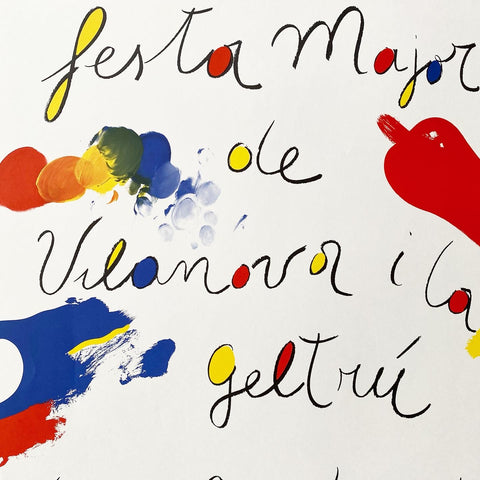 festa Major
de
Vilanova i la
geltrú